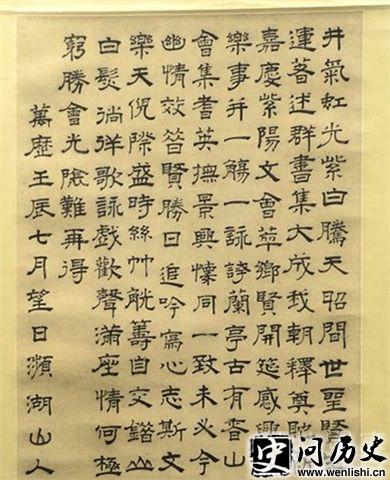 井氣虹光紫白騰天昭間世聖賢
運著述群書集大成我朝釋奠
嘉慶紫陽文會萃鄉賢開筵感興
樂事并一觴一詠誇蘭亭古有香山
會集耆英撫景興懷同一致未必今
幽情效昔賢勝日追吟寫心志斯文
樂天况際盛時絲竹觥籌自交錯山
白髮徜徉歌詠戲歡聲滿座情何極
窮勝會光陰難再得
萬歷壬辰七月望日瀕湖山人
史问历史
www.wenlishi.cn